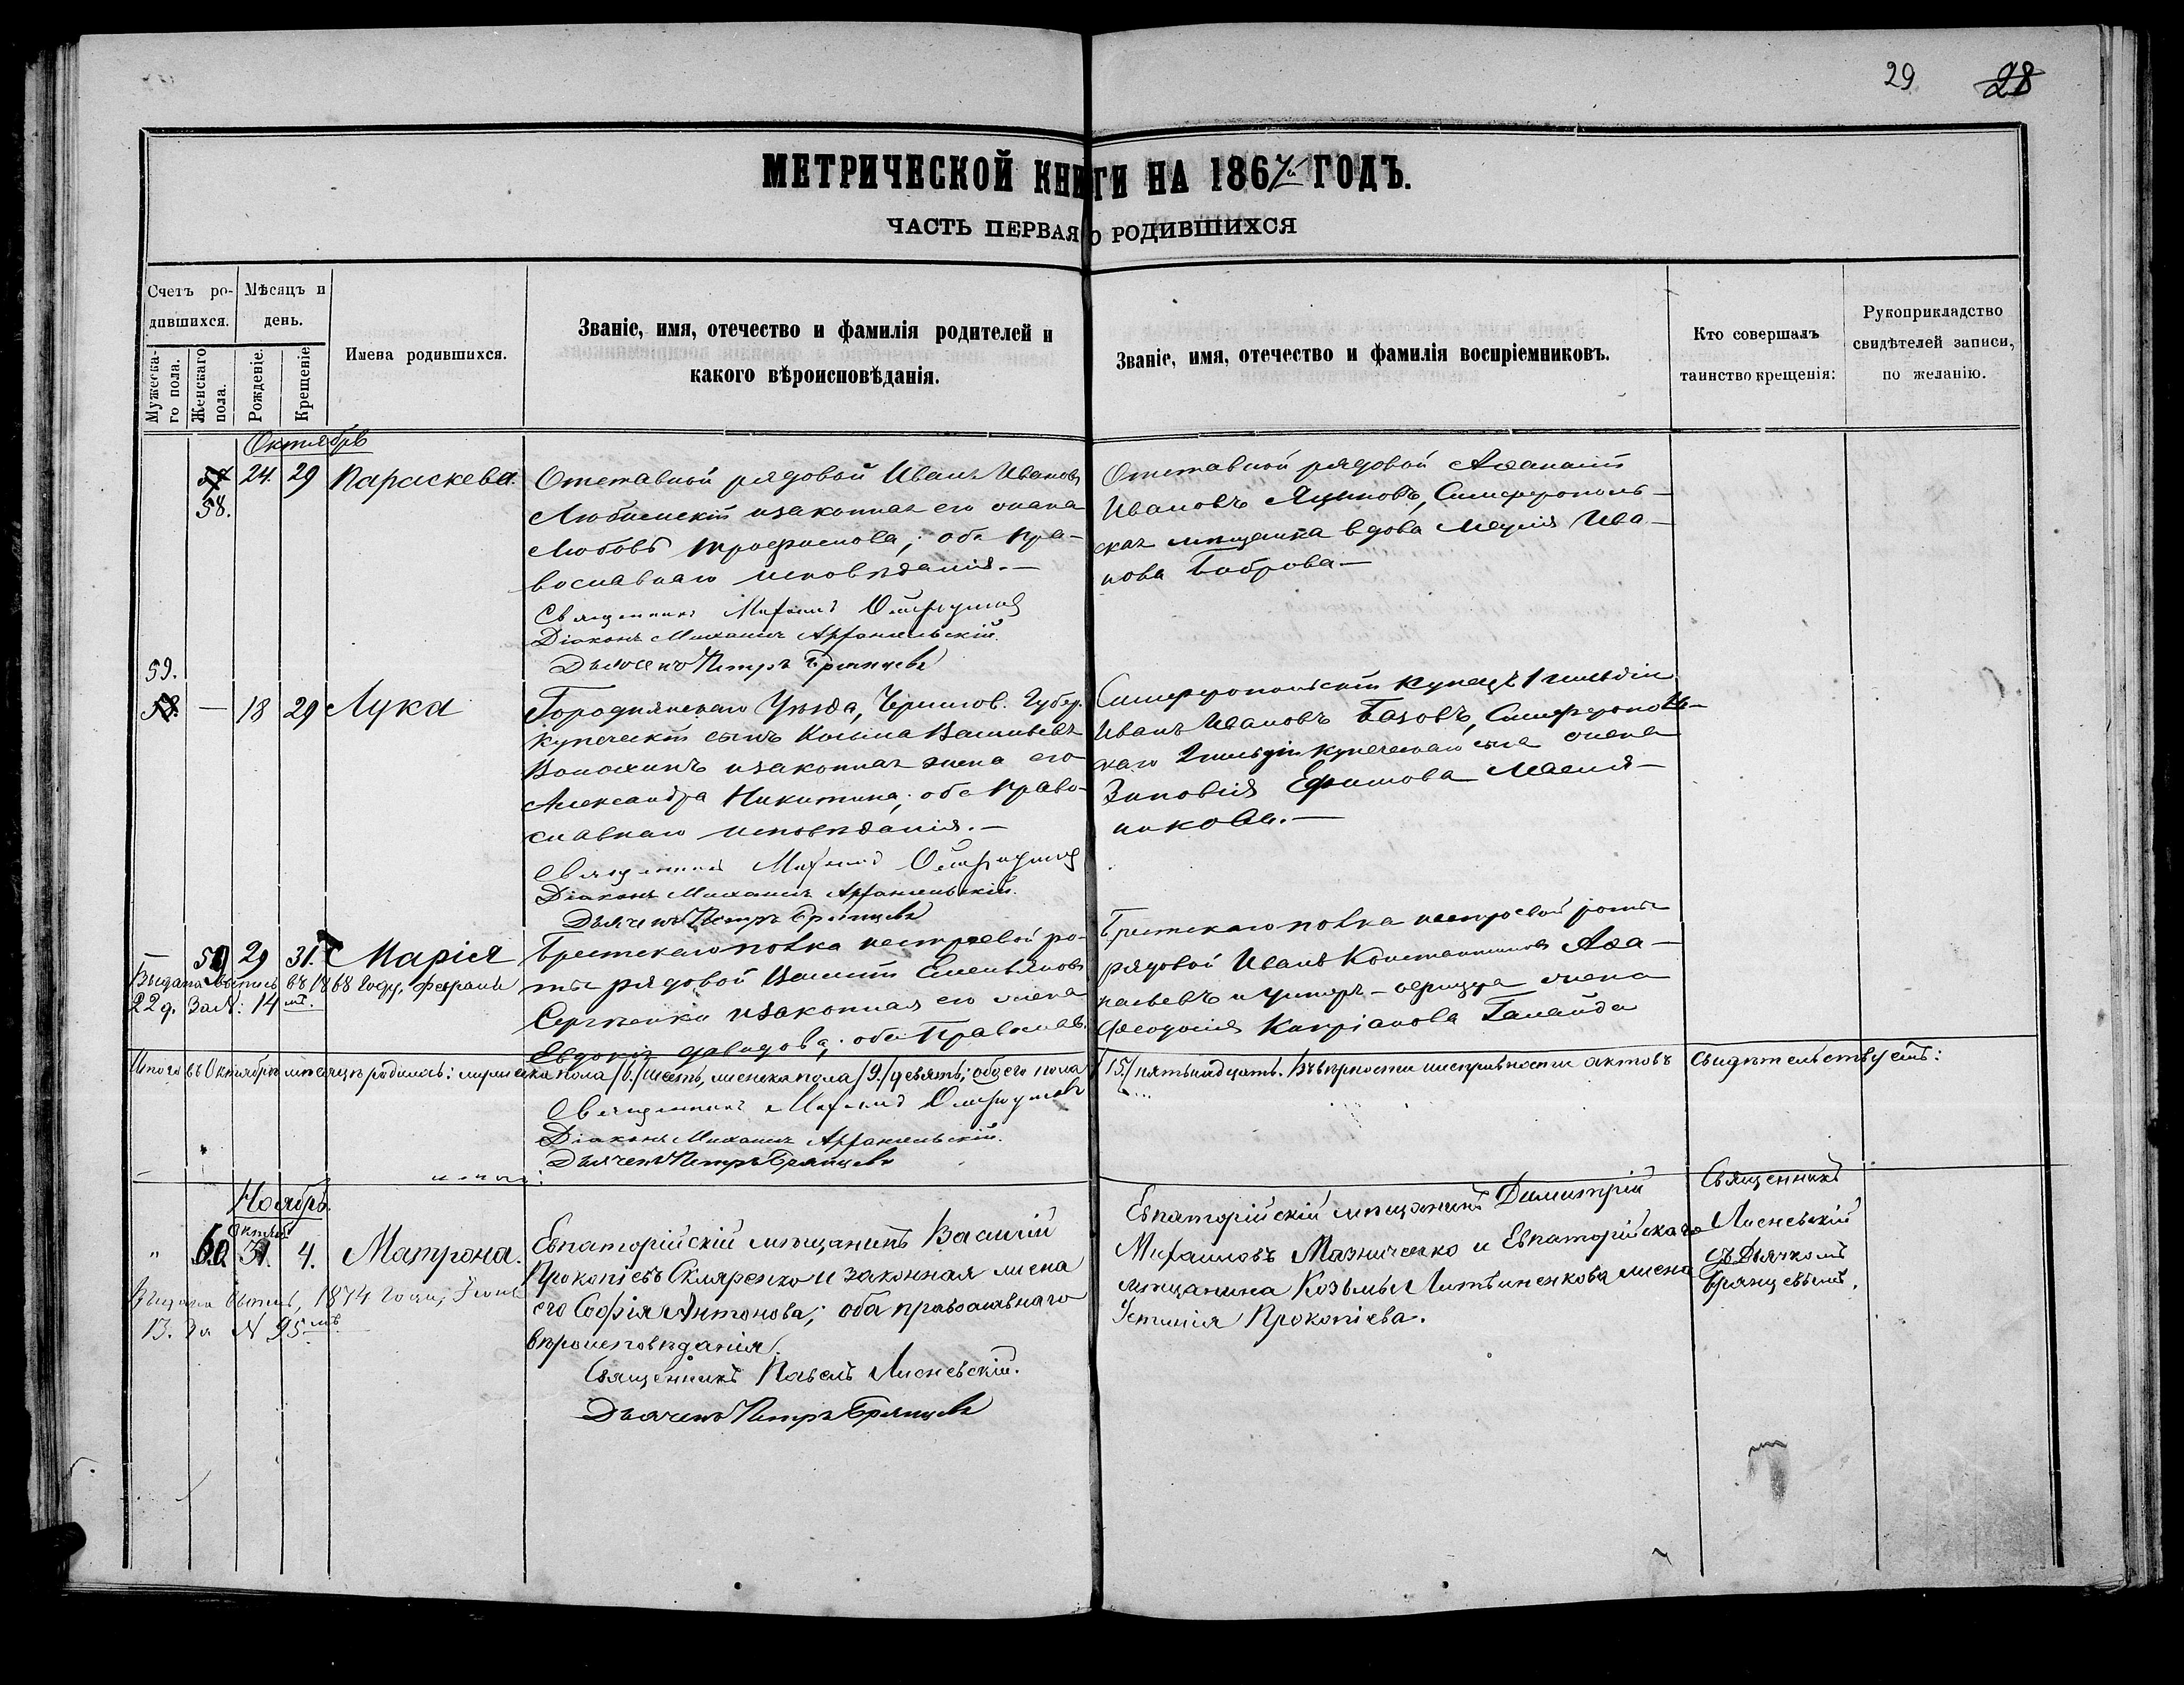 29 28
МЕТРИЧЕСКОЙ КНИГИ НА 1867й ГОДЪ.
ЧАСТЬ ПЕРВАЯ О РОДИВШИХСЯ
Счетъ ро-
дившихся.
Мужеска-
го пола.
Женскаго
пола.
Мѣсяцъ и
день.
Рожденіе.
Крещеніе
Имена родившихся.
Званіе, имя, отечество и фамилія родителей и
какого вѣроисповѣданія.
Званіе, имя, отечество и фамилія воспріемниковъ.
Кто совершалъ
таинство крещенія:
Рукоприкладство
свидѣтелей записи,
по желанію.
Октябрь
57 24. 29 Параскева.
58.
Отставной рядовой Иванъ Ивановъ
Любимскій и законная его жена
Любовь Трофимова; оба пра-
вославнаго исповѣданія.—
Священникъ Михаилъ
Діаконъ Михаилъ Архангельскій.
Дьячекъ Петръ Брянцевъ
Отставной рядовой Аѳанасій
Ивановъ Яцыновъ, Симферополь-
ская мѣщанка вдова Марія Ива-
нова Боброва—
59.
58. — 18 29 Лука
Городнянскаго Уѣзда, Чернигов. Губер.
купеческій сынъ Косьма Васильевъ
Волохинъ и законная жена его
Александра Никитина; оба право-
славнаго исповѣданія.—
Священникъ Михаилъ
Діаконъ Михаилъ Архангельскій.
Дьячекъ Петръ Брянцевъ
Симферопольскій купецъ 1 гильдіи
Иванъ Ивановъ Базовъ, Симферополь-
скаго 2 гильдіи купеческаго сына жена
Зиновія Ефимова Масля-
никова.—
— 59 29 31. Марія
Выдана выпись въ 1868 году, февраля
22 д. за №: 14 мъ.
Брестскаго полка нестроевой ро-
ты рядовой Василій Емельяновъ
Сергѣенко и законная его жена
Евдокія Давидова; оба Православ.
Брестскаго полка нестроевой роты
рядовой Иванъ Константиновъ Аѳа-
насьевъ и Унтеръ-офицера жена
Ѳеодосія Кипріанова Галайда
Итого въ Октябрѣ мѣсяцѣ родилось: мужеска пола /6./ шесть, женска пола /9./ девять; обоего пола /15./ пятьнадцать. Въ вѣрности и исправности актовъ свидѣтельствуемъ:
Священникъ Михаилъ
Діаконъ Михаилъ Архангельскій.
Дьячекъ Петръ Брянцевъ
Ноябрь.
Октяб.
" 60 31. 4. Матрона.
Выдана выпись, 1874 года, Іюня
13. За № 95 мъ.
Евпаторійскій мѣщанинъ Василій
Прокопіевъ Скляренко и законная жена
его Софія Антонова; оба православнаго
вѣроисповѣданія.
Священникъ Павелъ Лисневскій.
Дьячекъ Петръ Брянцевъ
Евпаторійскій мѣщанинъ Димитрій
Михаиловъ Мазниченко и Евпаторійскаго
мѣщанина Козьмы Литвиненкова жена
Устинія Прокопіева.
Священникъ
Лисневскій
съ Дьячкомъ
Брянцевымъ.